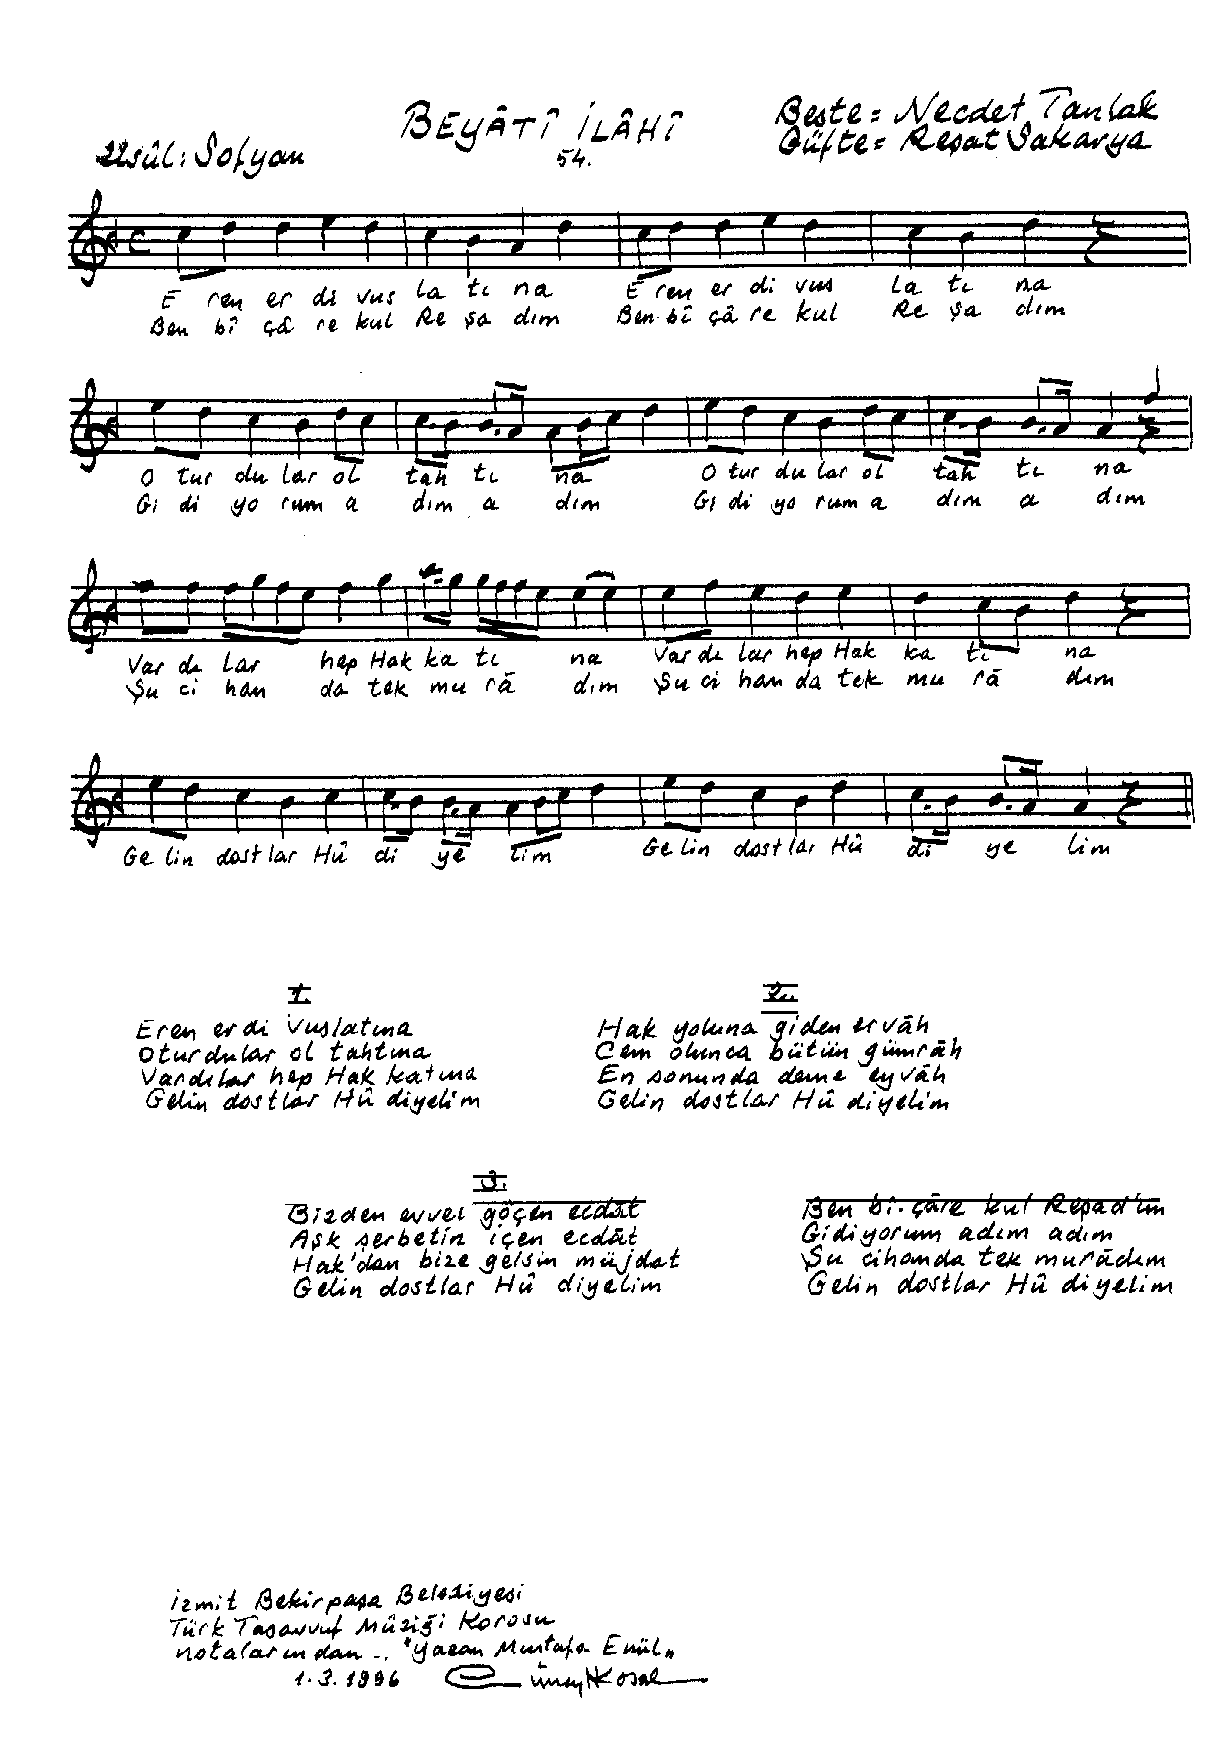 BEYÂTÎ İLÂHÎ
54.
Beste = Necdet Tanlak
Güfte = Reşat Sakarya
Usûl: Sofyan
E ren er di vus la tı na E ren er di vus la tı na
Ben bî çâ re kul Re şa dım Ben bî çâ re kul Re şa dım
O tur du lar ol tah tı na O tur du lar ol tah tı na
Gi di yo rum a dım a dım Gi di yo rum a dım a dım
Var dı lar hep Hak ka tı na Var dı lar hep Hak ka tı na
Şu ci han da tek mu râ dım Şu ci han da tek mu râ dım
Ge lin dost lar Hû di ye lim Ge lin dost lar Hû di ye lim
1.
Eren erdi vuslatına
Oturdular ol tahtına
Vardılar hep Hak katına
Gelin dostlar Hû diyelim
2.
Hak yoluna giden ervâh
Cem olunca bütün gümrâh
En sonunda deme eyvâh
Gelin dostlar Hû diyelim
3.
Bizden evvel göçen ecdât
Aşk şerbetin içen ecdât
Hak'dan bize gelsin müjdat
Gelin dostlar Hû diyelim
Ben bî-çâre kul Reşad'ım
Gidiyorum adım adım
Şu cihanda tek murâdım
Gelin dostlar Hû diyelim
İzmit Bekirpaşa Belediyesi
Türk Tasavvuf Mûsiği Korosu
notalarından .. "Yazan Mustafa
1.3.1996